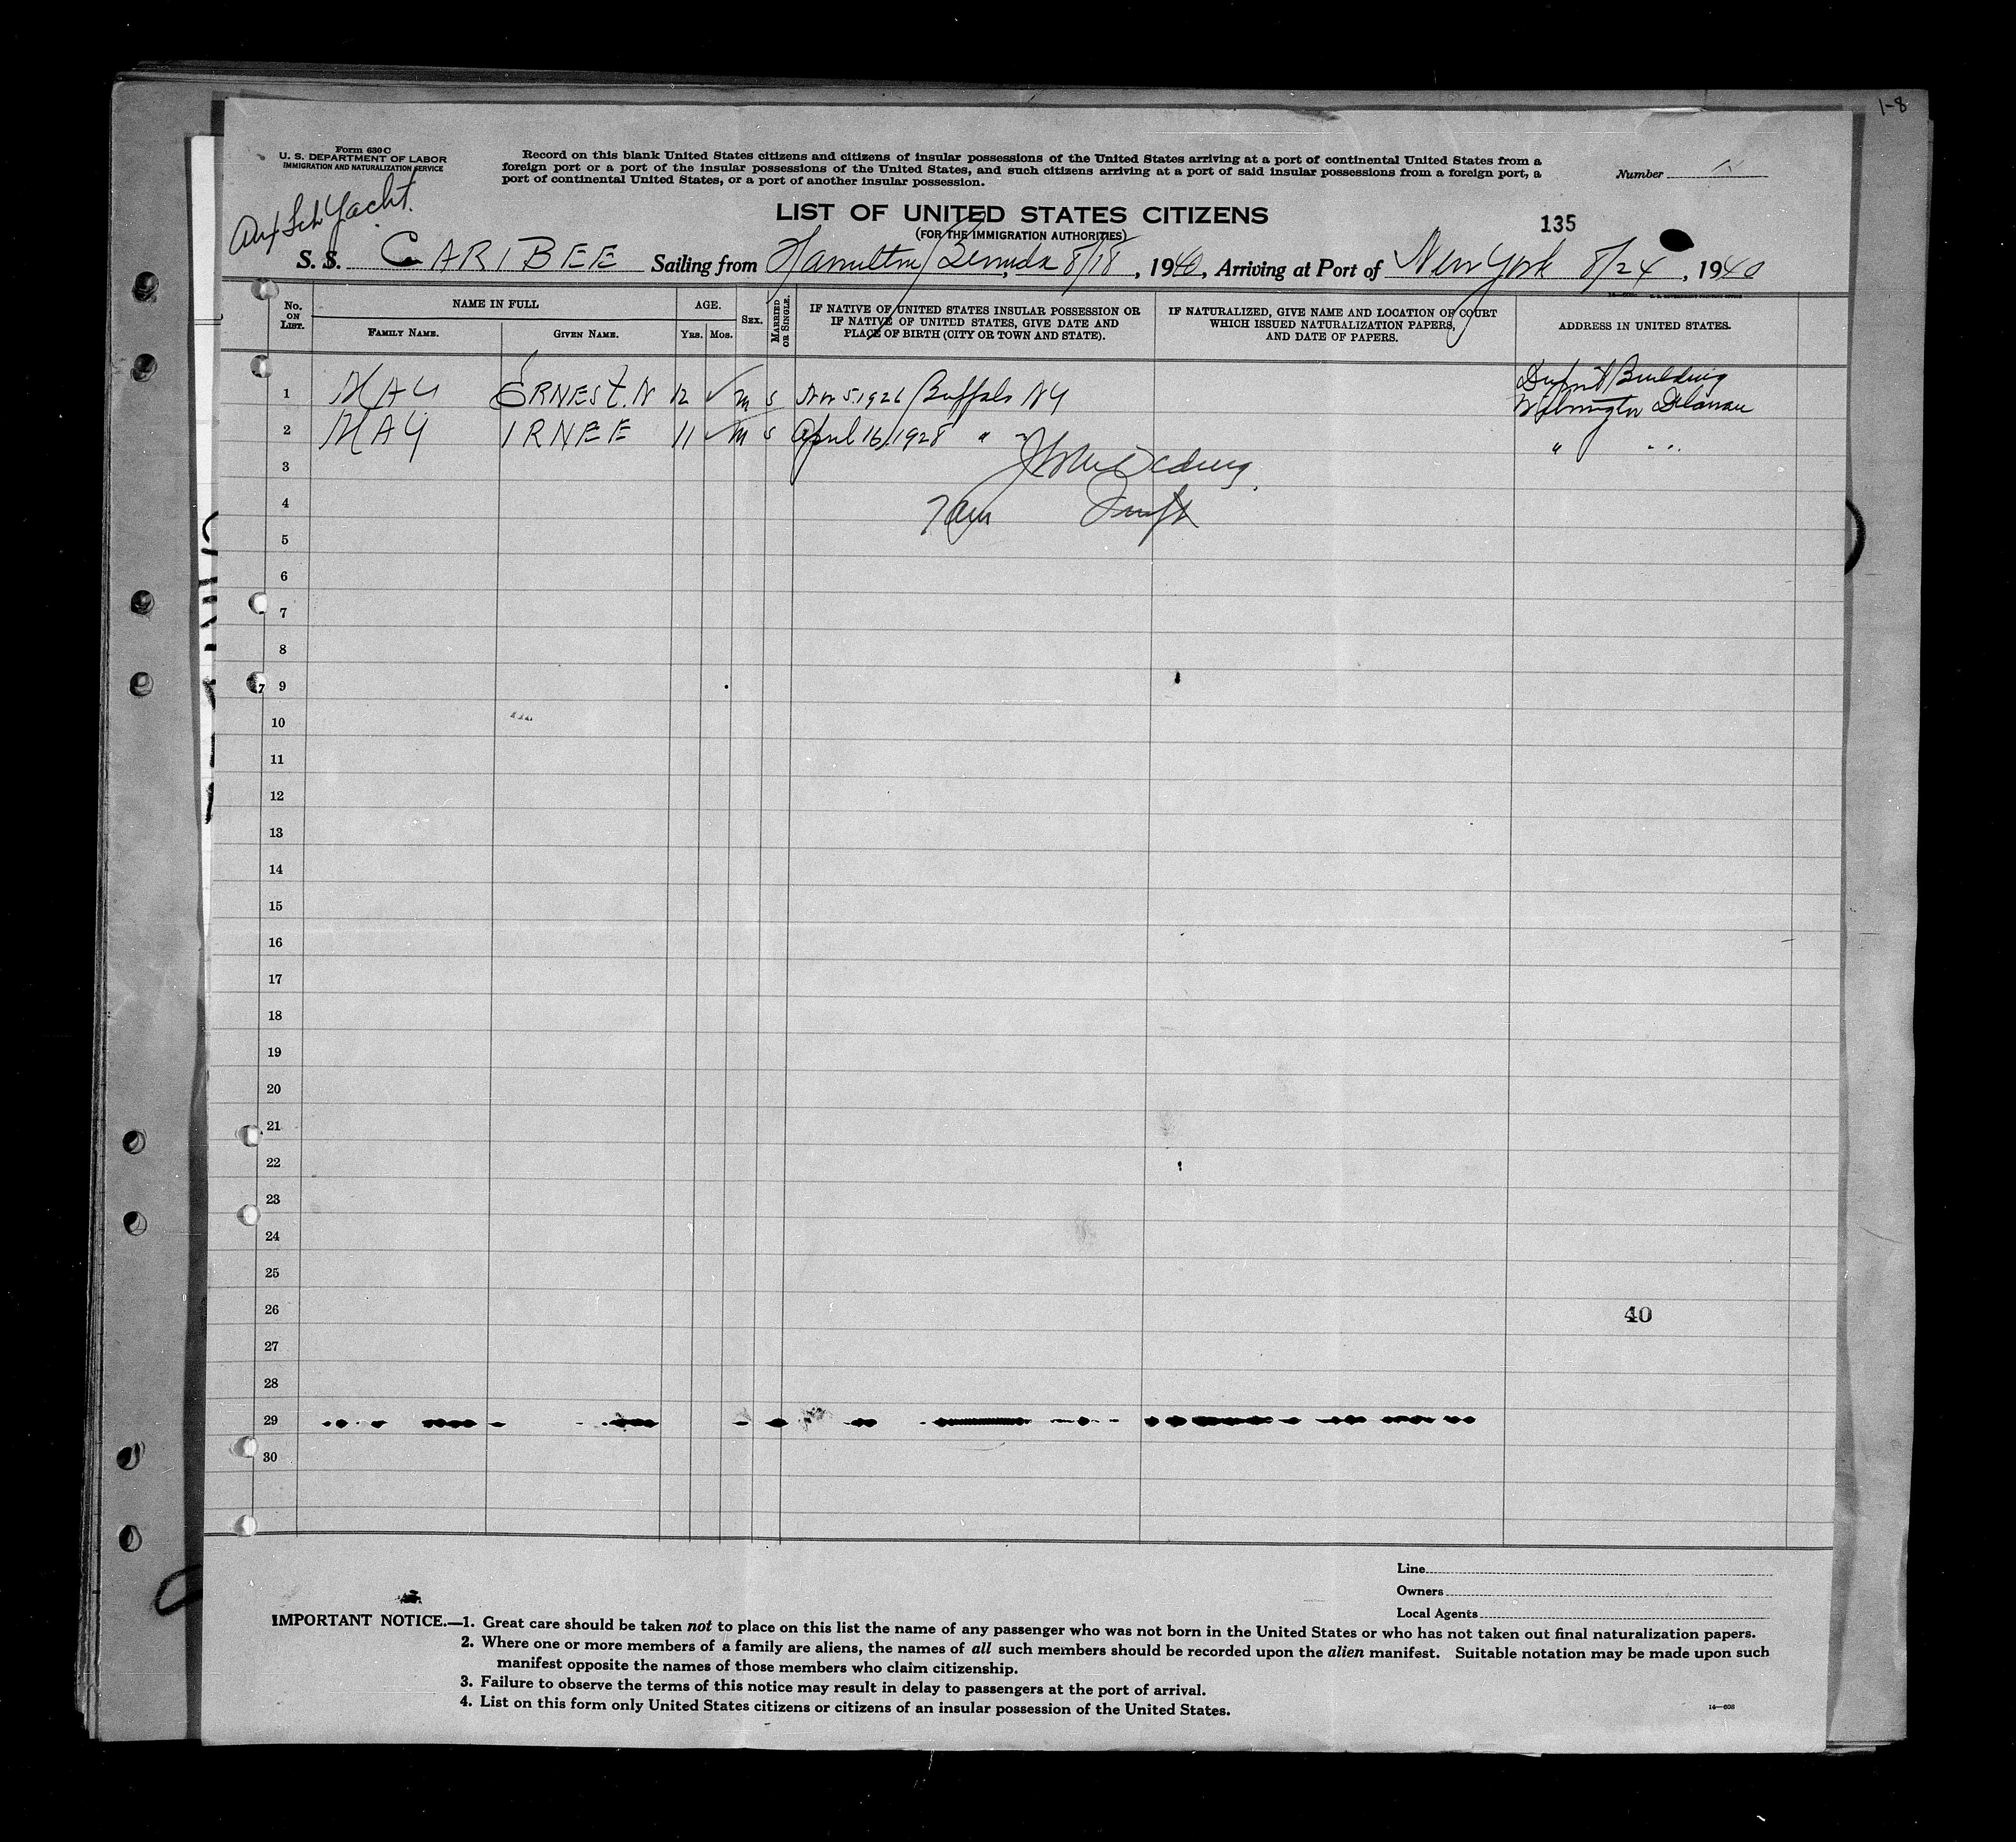 1-8
Form 630 C
U. S. DEPARTMENT OF LABOR
IMMIGRATION AND NATURALIZATION SERVICE
Record on this blank United States citizens and citizens of insular possessions of the United States arriving at a port of continental United States from a
foreign port or a port of the insular possessions of the United States, and such citizens arriving at a port of said insular possessions from a foreign port, a
port of continental United States, or a port of another insular possession.
Number
Aux Sch Yacht.
LIST OF UNITED STATES CITIZENS
(FOR THE IMMIGRATION AUTHORITIES)
135
S. S. CARIBEE Sailing from Hamilton Bermuda 8/18, 1940, Arriving at Port of New York 8/24, 1940
No. ON LIST. NAME IN FULL AGE. SEX. MARRIED OR SINGLE. IF NATIVE OF UNITED STATES INSULAR POSSESSION OR IF NATIVE OF UNITED STATES, GIVE DATE AND PLACE OF BIRTH (CITY OR TOWN AND STATE). IF NATURALIZED, GIVE NAME AND LOCATION OF COURT WHICH ISSUED NATURALIZATION PAPERS, AND DATE OF PAPERS. ADDRESS IN UNITED STATES.
FAMILY NAME. GIVEN NAME. YRS. MOS.
1 MAY ERNEST. N 12 ✓ m s Nov 5, 1926 Buffalo NY Dupont Building
Wilmington Delaware
2 MAY IRNEE 11 ✓ m s April 16, 1928 " " " "
3
4
5
6
7
8
7 9
10
11
12
13
14
15
16
17
18
19
20
21
22
23
24
25
26 40
27
28
29
30
Line
Owners
Local Agents
IMPORTANT NOTICE.—1. Great care should be taken not to place on this list the name of any passenger who was not born in the United States or who has not taken out final naturalization papers.
2. Where one or more members of a family are aliens, the names of all such members should be recorded upon the alien manifest. Suitable notation may be made upon such
manifest opposite the names of those members who claim citizenship.
3. Failure to observe the terms of this notice may result in delay to passengers at the port of arrival.
4. List on this form only United States citizens or citizens of an insular possession of the United States.
14—608